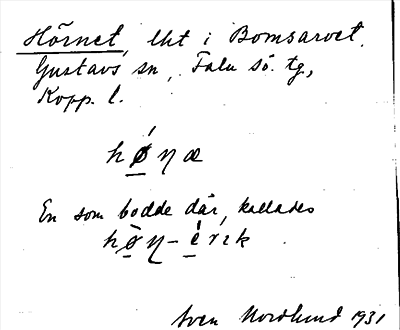 Hörnet, lht i Bomsarvet,
Gustavs sn, Falu sö. tg,
Kopp. l.
hǿ̱ɳæ
En som bodde där, kallades
hø̱̀ɳ-é̱rɪk
Sven Nordlund 1931